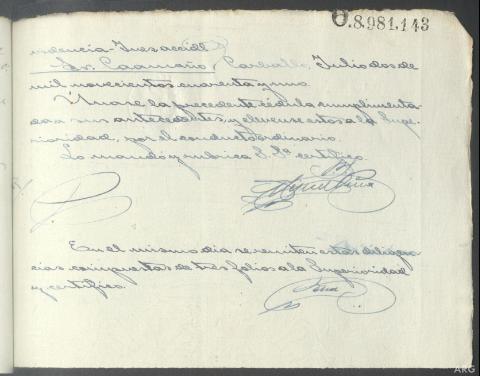 O.8.981.143
videncia Juez accidl
Sr. Caamaño, Carballo Julio dos de
mil novecientos cuarenta y uno.
Unase la precedente cédula cumplimenta-
da a sus antecedentes, y elevense estos a la Supe-
rioridad, por el conducto ordinario.
Lo mandó y rubrica S. Sª certifico.
En el mismo dia se remiten estas diligen-
cias compuestas de tres folios a la Superioridad
y certifico.
ARG